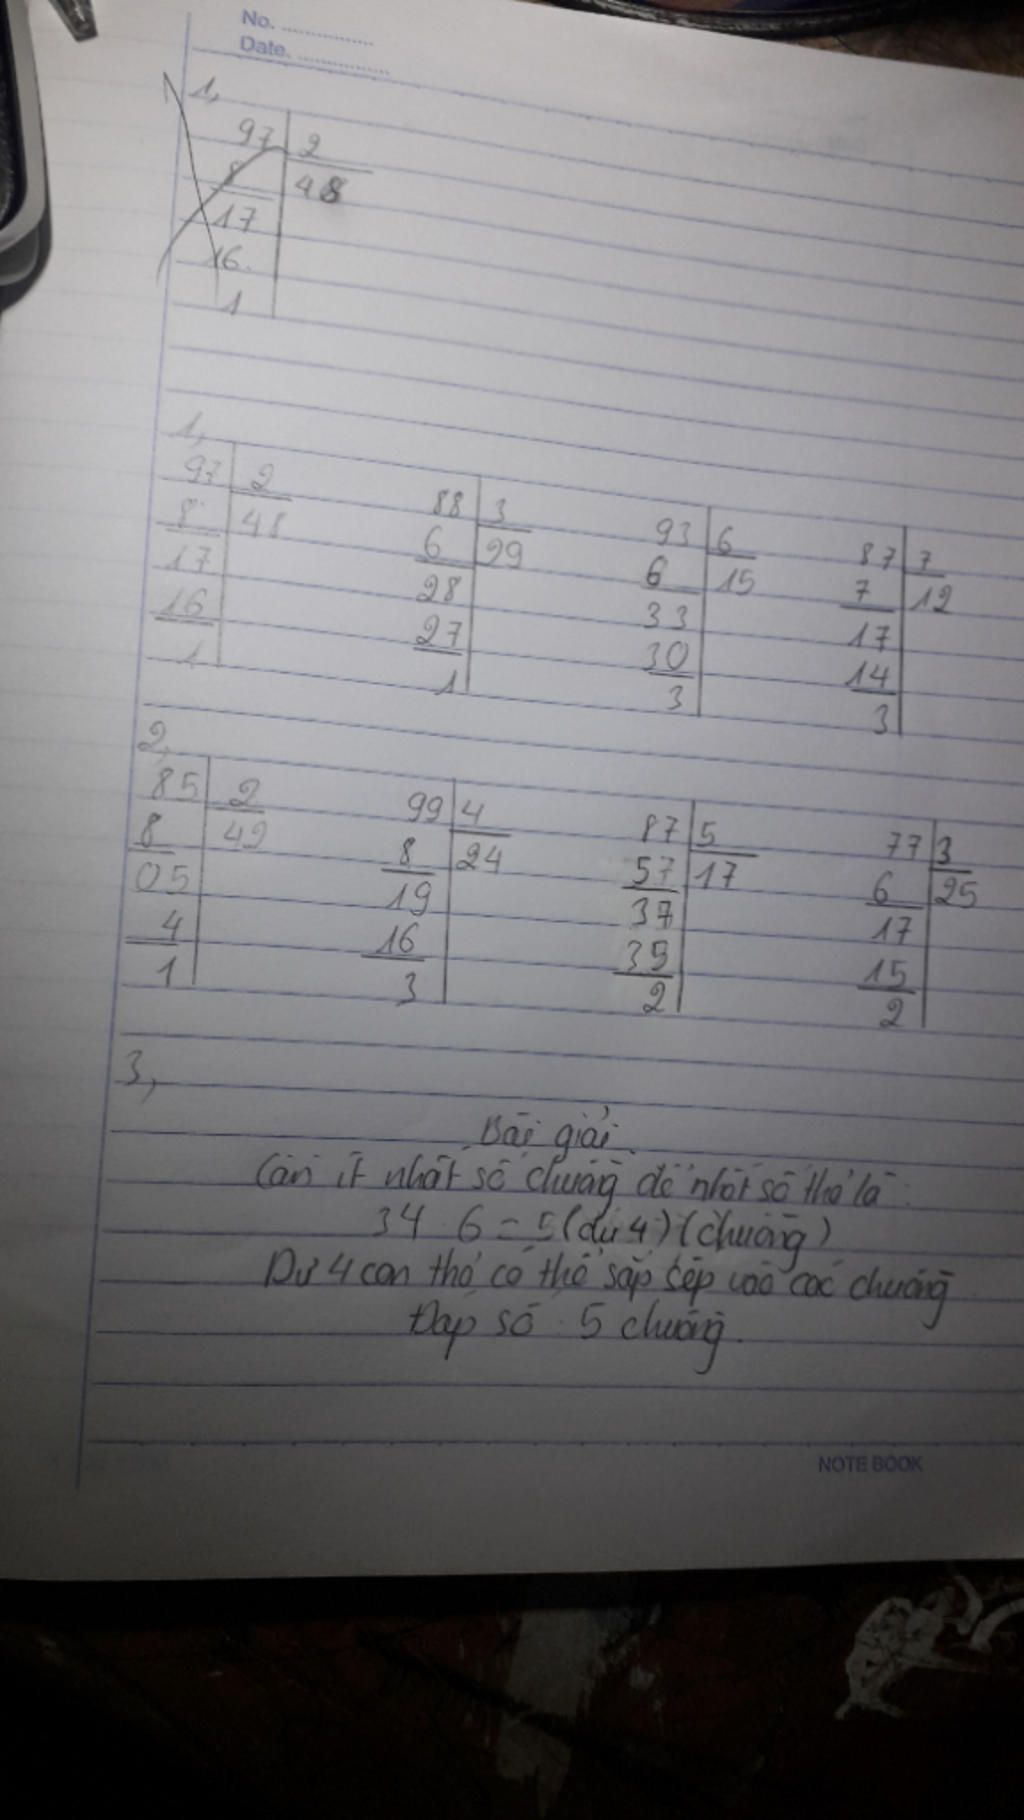 No.
Date.
1,
97 2
8 48
17
16
1
1,
97 2 88 3 93 6 87 7
8 48 6 29 6 15 7 12
17 28 33 17
16 27 30 14
1 1 3 3
2,
85 2 99 4 87 5 77 3
8 42 8 24 57 17 6 25
05 19 37 17
4 16 35 15
1 3 2 2
3,
Bài giải
Cần ít nhất số chuồng để nhốt số thỏ là:
34 : 6 = 5 (dư 4) (chuồng)
Dư 4 con thỏ có thể sắp sếp vào các chuồng
Đáp số : 5 chuồng.
NOTE BOOK